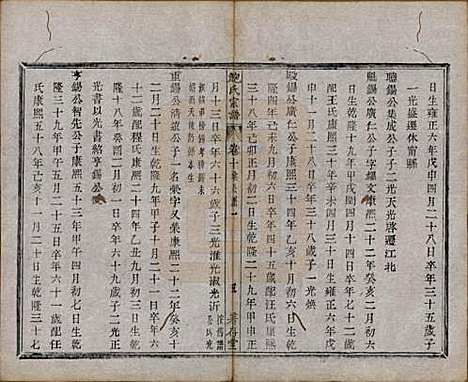 日生雍正六年戊申四月二十八日卒年三十五歲子
一光盛遷休甯縣
聰錫公集成公子子二光天光啓遷江北
魁錫公廣仁公子字耀文康熙二十二年癸亥二月六
日生乾隆十九年甲戌閏四月十四日卒年七十二歲
配王氏康熙三十年辛未四月三日生雍正六年戊
申二月二十八日卒年三十八歲子一光煥
錫公廣仁公子康熙三十四年乙亥十月初六日生乾
隆四年己未九月初六日卒年四十五歲配汪氏康熙
三十八年己卯正月初六日生乾隆二十九年甲申正
鮑氏宗譜 卷十 五 著存堂
月十三日卒年六十六歲子三光淮光淑光沂
重錫公清濱公子一名榮字又榮康熙二十二年癸亥十
二月二十日生乾隆九年甲子十月二十一日卒年六
十二歲配程氏康熙二十四年乙丑九月初三日生乾
隆十八年癸酉二月初一日卒年六十九歲子二光正
光書以光書紹亨錫公
亨錫公智先公子康熙五十三年甲午四月初七日生乾
隆三十九年甲午五月二十五日卒年六十一歲配任
氏康熙五十八年己亥十一月二十日生乾隆三十七